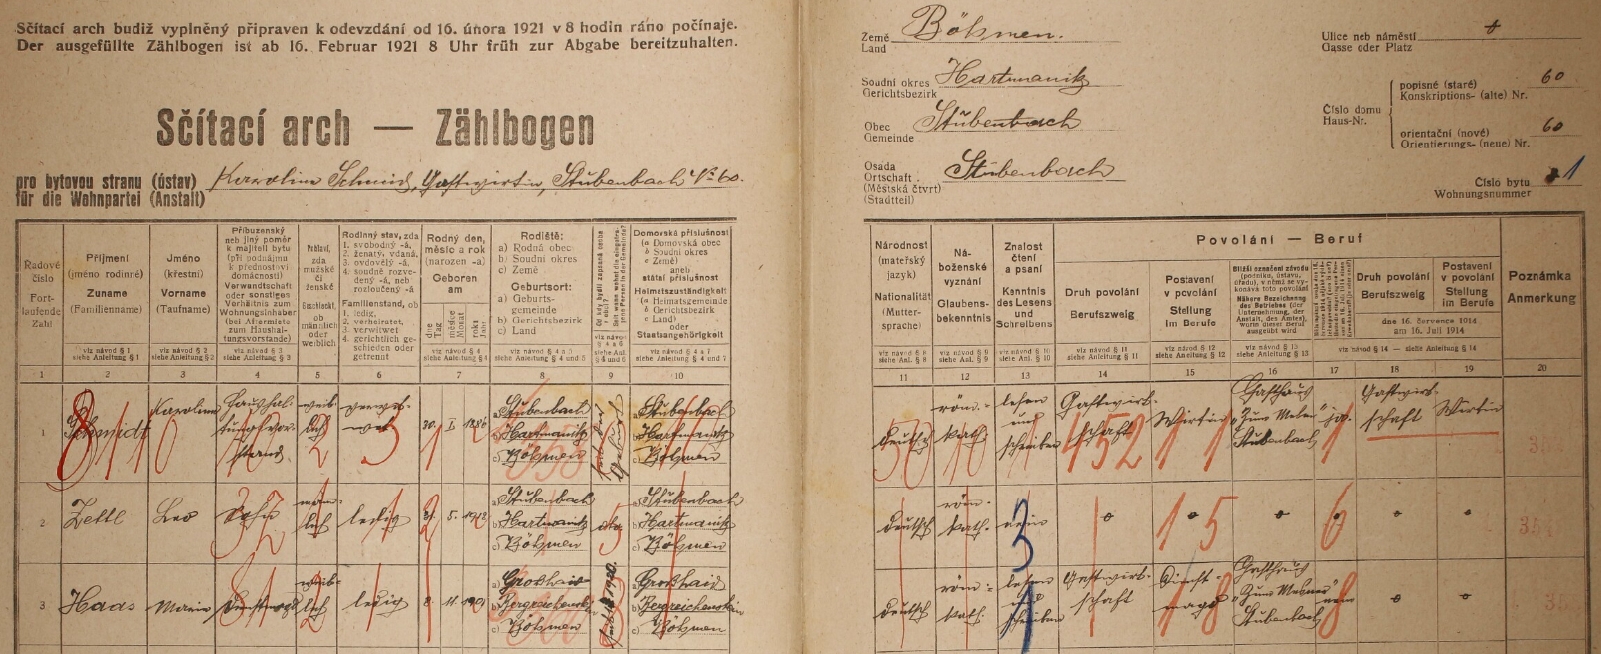 Sčítací arch budiž vyplněný připraven k odevzdání od 16. února 1921 v 8 hodin ráno počínaje.
Der ausgefüllte Zählbogen ist ab 16. Februar 1921 8 Uhr früh zur Abgabe bereitzuhalten.
Sčítací arch — Zählbogen
pro bytovou stranu (ústav)
für die Wohnpartei (Anstalt)
Karolina Schmid, Gastwirtin, Stubenbach No 60.
Země
Land
Böhmen.
Soudní okres
Gerichtsbezirk
Hartmanitz
Obec
Gemeinde
Stubenbach
Osada
Ortschaft
(Městská čtvrť)
(Stadtteil)
Stubenbach
Ulice neb náměstí
Gasse oder Platz
Číslo domu
Haus-Nr.
popisné (staré)
Konskriptions- (alte) Nr.
60
orientační (nové)
Orientierungs- (neue) Nr.
60
Číslo bytu
Wohnungsnummer
1
Řadové
číslo
Fort-
laufende
Zahl
Příjmení
(jméno rodinné)
Zuname
(Familienname)
viz návod § 1
siehe Anleitung § 1
Jméno
(křestní)
Vorname
(Taufname)
viz návod § 2
siehe Anleitung § 2
Příbuzenský
neb jiný poměr
k majiteli bytu
(při podnájmu
k přednostovi
domácnosti)
Verwandtschaft
oder sonstiges
Verhältnis zum
Wohnungsinhaber
(bei Aftermiete
zum Haushal-
tungsvorstande)
viz návod § 3
siehe Anleitung § 3
Pohlaví,
zda
mužské
či
ženské
Geschlecht,
ob
männlich
oder
weiblich
Rodinný stav, zda
1. svobodný -á,
2. ženatý, vdaná,
3. ovdovělý -á,
4. soudně rozve-
dený -á, neb
rozloučený -á
Familienstand, ob
1. ledig,
2. verheiratet,
3. verwitwet
4. gerichtlich ge-
schieden oder
getrennt
Rodný den,
měsíc a rok
(narozen -a)
Geboren
am
dne
Tag
měsíce
Monat
roku
Jahr
viz návod § 4
siehe Anleitung § 4
Rodiště:
a) Rodná obec
b) Soudní okres
c) Země
Geburtsort:
a) Geburts-
gemeinde
b) Gerichtsbezirk
c) Land
viz návod § 4 a 5
siehe Anleitung § 4 und 5
Domovská příslušnost
(a Domovská obec
b Soudní okres
c Země)
aneb
státní příslušnost
Heimatszuständigkeit
(a Heimatsgemeinde
b Gerichtsbezirk
c Land)
oder
Staatsangehörigkeit
viz návod § 4 a 7
siehe Anleitung § 4 und 7
Národnost
(mateřský
jazyk)
Nationalität
(Mutter-
sprache)
viz návod § 8
siehe Anl. § 8
Ná-
boženské
vyznání
Glaubens-
bekenntnis
viz návod § 9
siehe Anl. § 9
Znalost
čtení
a psaní
Kenntnis
des Lesens
und
Schreibens
viz návod § 10
siehe Anl. § 10
Povolání — Beruf
Druh povolání
Berufszweig
viz návod § 11
siehe Anleitung § 11
Postavení
v povolání
Stellung
im Berufe
viz návod § 12
siehe Anleitung § 12
Bližší označení závodu
(podniku, ústavu,
úřadu), v němž se vy-
konává toto povolání
Nähere Bezeichnung
des Betriebes (der
Unternehmung, der
Anstalt, des Amtes),
worin dieser Beruf
ausgeübt wird
viz návod § 13
siehe Anleitung § 13
Druh povolání
Berufszweig
Postavení
v povolání
Stellung
im Berufe
dne 16. července 1914
am 16. Juli 1914
viz návod § 14 — siehe Anleitung § 14
Poznámka
Anmerkung
1 2 3 4 5 6 7 8 9 10 11 12 13 14 15 16 17 18 19 20
1
Schmidt
Karolina
Haushal-
tungsvor-
stand.
weib-
lich
verwit-
wet
30. I. 1886
a) Stubenbach
b) Hartmanitz
c) Böhmen
a) Stubenbach
b) Hartmanitz
c) Böhmen
deutsch
röm.-
kath.
lesen
und
schreiben
Gastwirt-
schaft
Wirtin
Gasthaus
Stubenbach
ja.
Gastwirt-
schaft
Wirtin
2
Zettl
Leo
Sohn
männ-
lich
ledig
5. 1912
a) Stubenbach
b) Hartmanitz
c) Böhmen
a) Stubenbach
b) Hartmanitz
c) Böhmen
deutsch
röm.
kath.
nein
3
Haas
Maria
Dienstmagd
weib-
lich
ledig
8. 11.
a) Groshaid
b) Bergreichenstein
c) Böhmen
a) Groshaid
b) Bergreichenstein
c) Böhmen
deutsch
röm.
kath.
lesen
und
schreiben
Gastwirt-
schaft
Dienst-
magd
Gasthaus
Stubenbach
nein